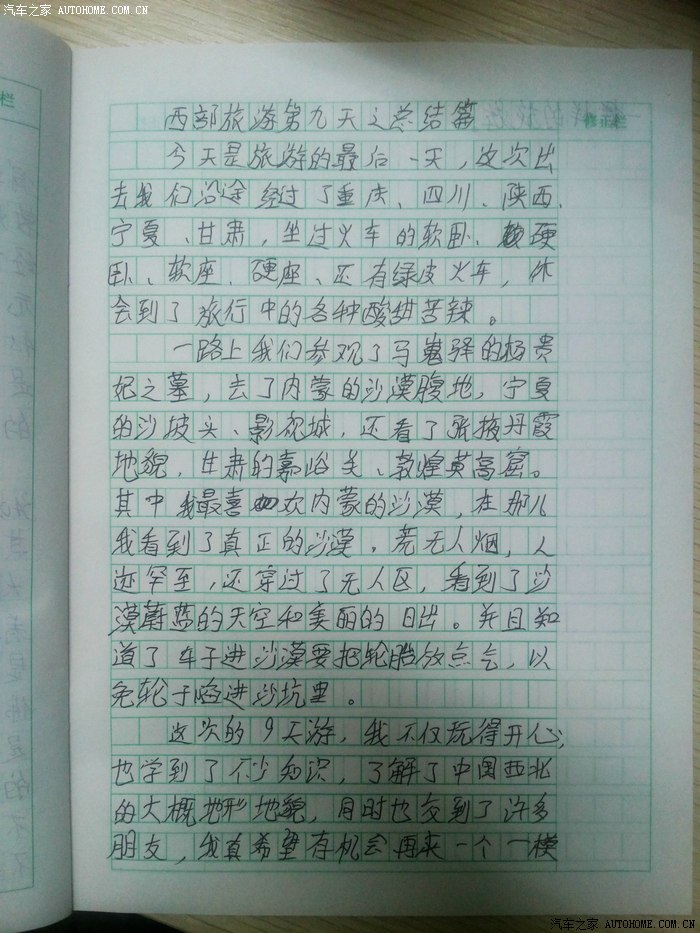 汽车之家 AUTOHOME.COM.CN
栏
修正栏
西部旅游第九天之总结篇
今天是旅游的最后一天，这次出
去我们沿途经过了重庆、四川、陕西、
宁夏、甘肃，坐过火车的软卧、硬
卧、软座、硬座、还有绿皮火车，体
会到了旅行中的各种酸甜苦辣。
一路上我们参观了马嵬驿的杨贵
妃之墓，去了内蒙的沙漠腹地，宁夏
的沙坡头、影视城，还看了张掖丹霞
地貌，甘肃的嘉峪关、敦煌莫高窟。
其中我最喜欢内蒙的沙漠，在那儿
我看到了真正的沙漠，荒无人烟，人
迹罕至，还穿过了无人区，看到了沙
漠蔚蓝的天空和美丽的日出。并且知
道了车子进沙漠要把轮胎放点气，以
免轮子陷进沙坑里。
这次的9天游，我不仅玩得开心，
也学到了不少知识，了解了中国西北
的大概地形地貌，同时也交到了许多
朋友，我真希望有机会再来一个一模
汽车之家 AUTOHOME.COM.CN